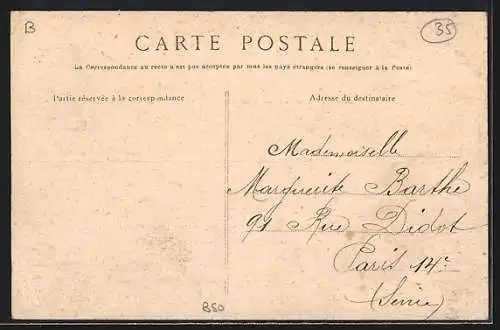 B
35
CARTE POSTALE
La Correspondance au recto n'est pas acceptée par tous les pays étrangers (se renseigner à la Poste)
Partie réservée à la correspondance
Adresse du destinataire
Mademoiselle
Marguerite Barthe
91 Rue Didot
Paris 14e
(Seine)
B50